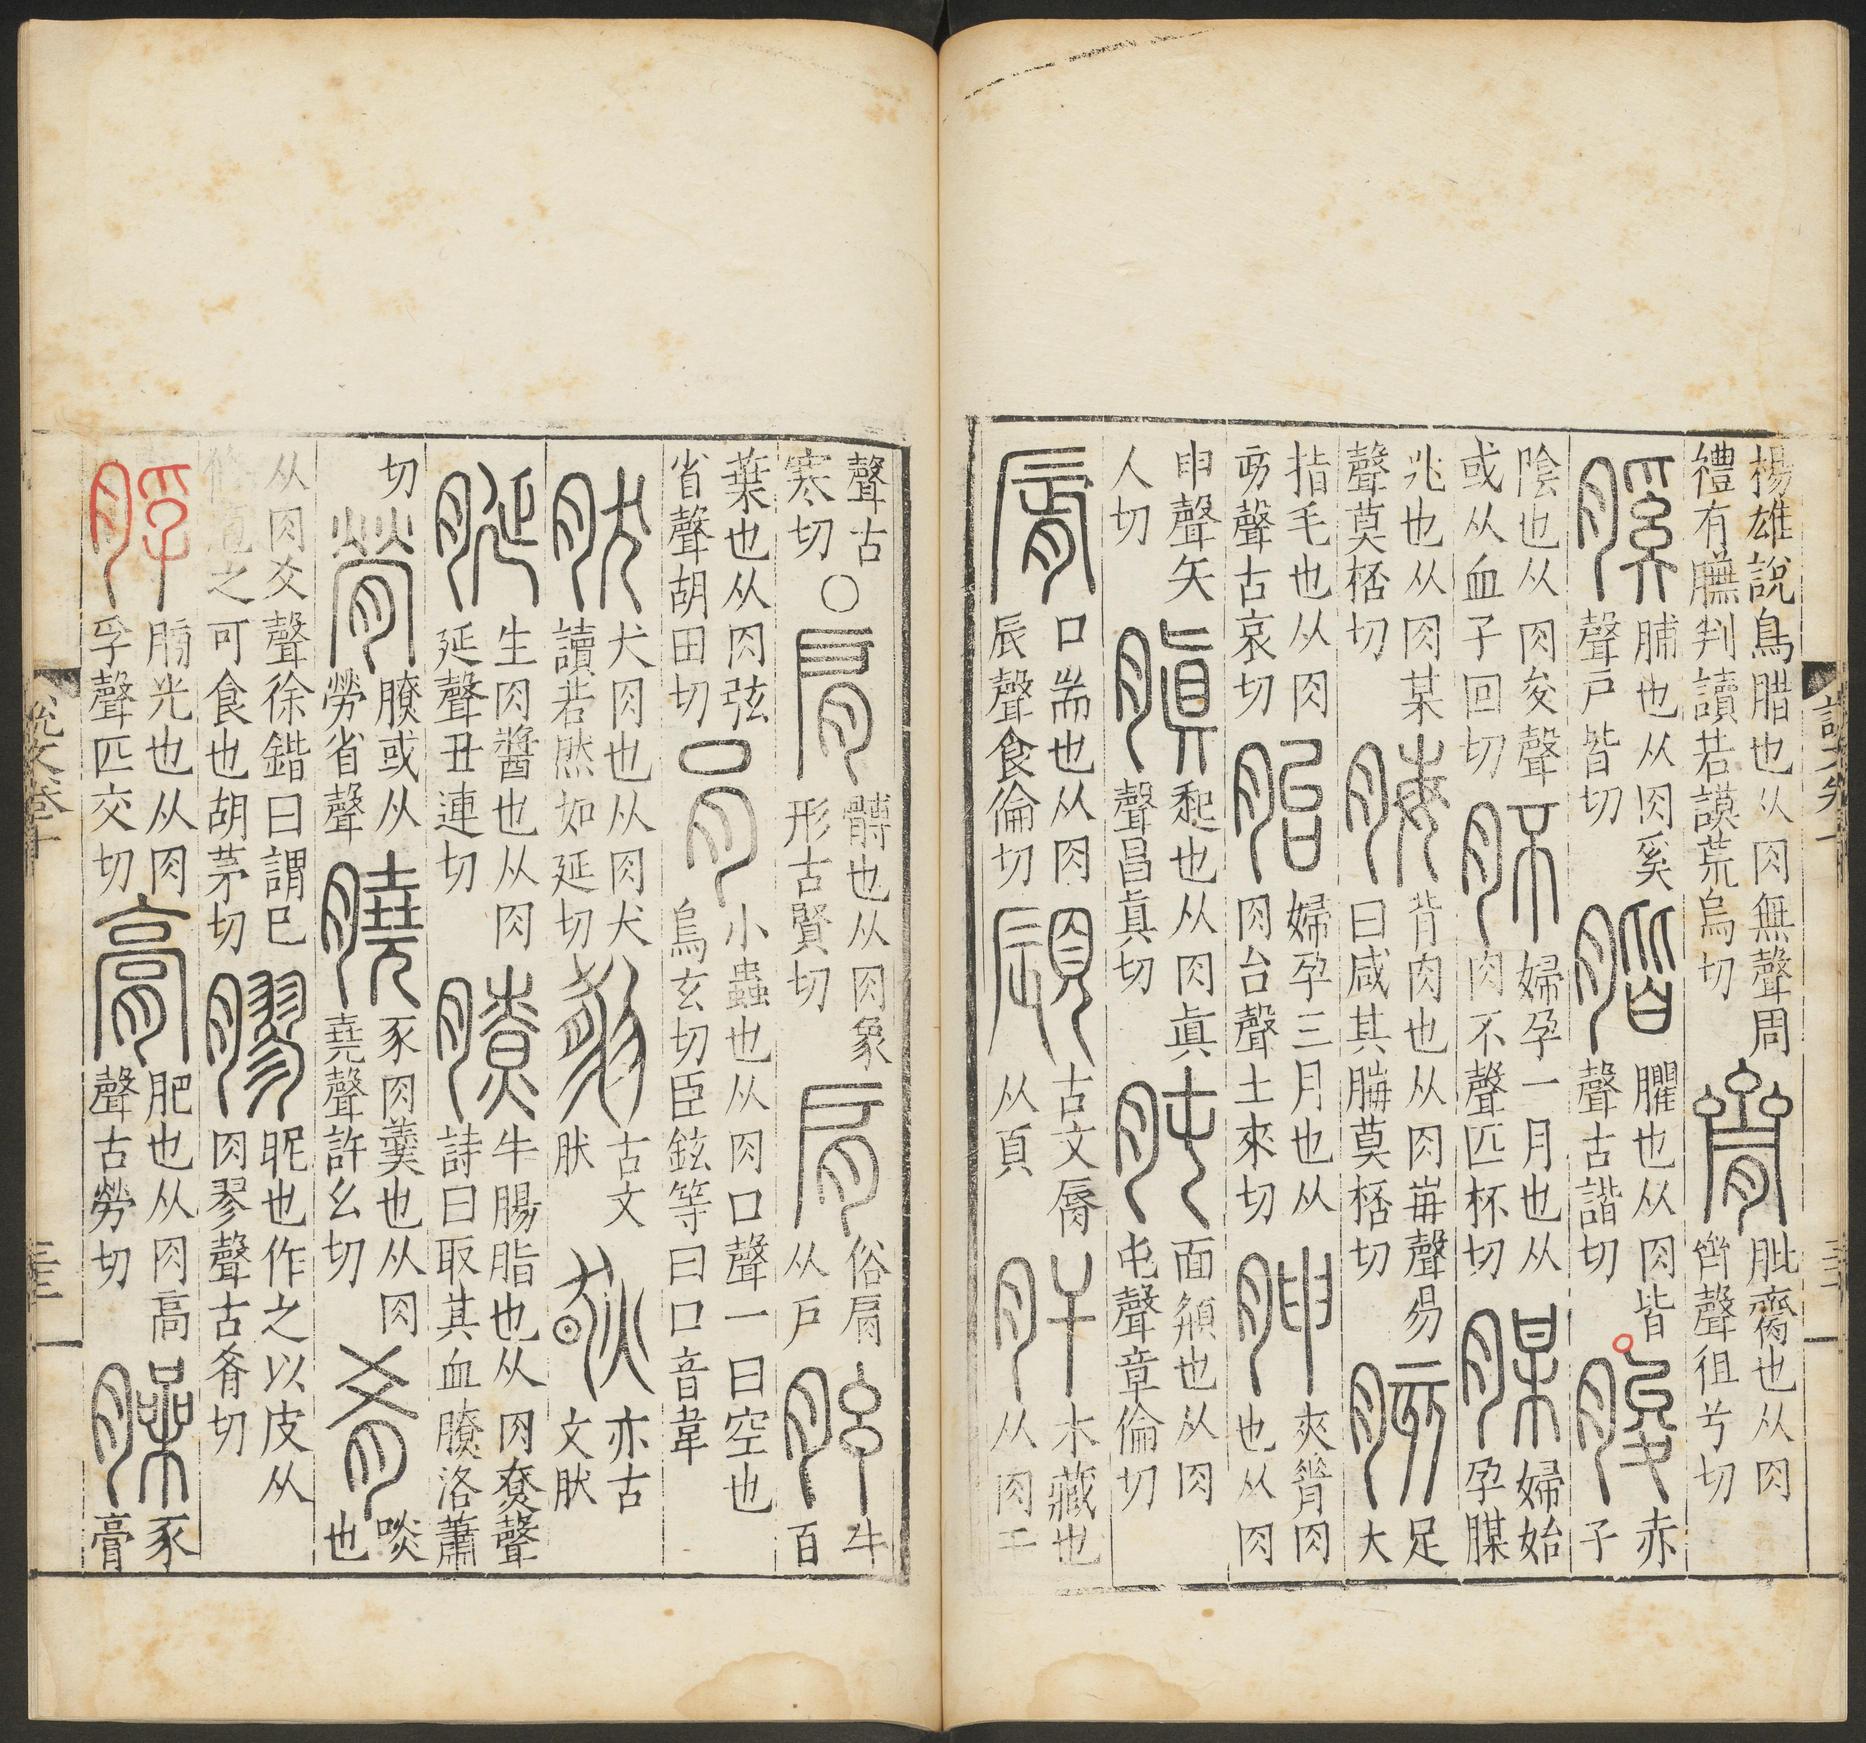 楊雄說鳥腊也从肉無聲周禮有膴判讀若謨荒烏切 臍 肶齊也从肉齊聲徂兮切
膎 脯也从肉奚聲戶皆切 臞也从肉皆聲古諧切 朘 赤子
陰也从肉夋聲或从血子回切 肧 婦孕一月也从肉不聲匹杯切 腜 婦始孕腜
兆也从肉某聲莫桮切 脢 背肉也从肉每聲易曰咸其脢莫桮切 胲 足大
指毛也从肉亥聲古哀切 胎 婦孕三月也从肉台聲土來切 胂 夾脊肉也从肉
申聲矢人切 䐜 起也从肉眞聲昌眞切 肫 面頯也从肉屯聲章倫切
脣 口耑也从肉辰聲食倫切 顅 古文脣从頁 肝 木藏也从肉干
聲古寒切 ○ 肩 髆也从肉象形古賢切 肩 俗肩从戶 胘 牛百
葉也从肉弦省聲胡田切 肙 小蟲也从肉口聲一曰空也烏玄切臣鉉等曰口音韋
肰 犬肉也从肉犬讀若然如延切 古文肰 亦古文肰
脠 生肉醬也从肉延聲丑連切 膫 牛腸脂也从肉尞聲詩曰取其血膫洛蕭
切 膋 膫或从勞省聲 膮 豕肉羹也从肉堯聲許幺切 肴 啖也
从肉爻聲徐錯曰謂已脩庖之可食也胡茅切 膠 昵也作之以皮从肉翏聲古肴切
脬 膀光也从肉孚聲匹交切 膏 肥也从肉高聲古勞切 臊 豕膏
說文卷十